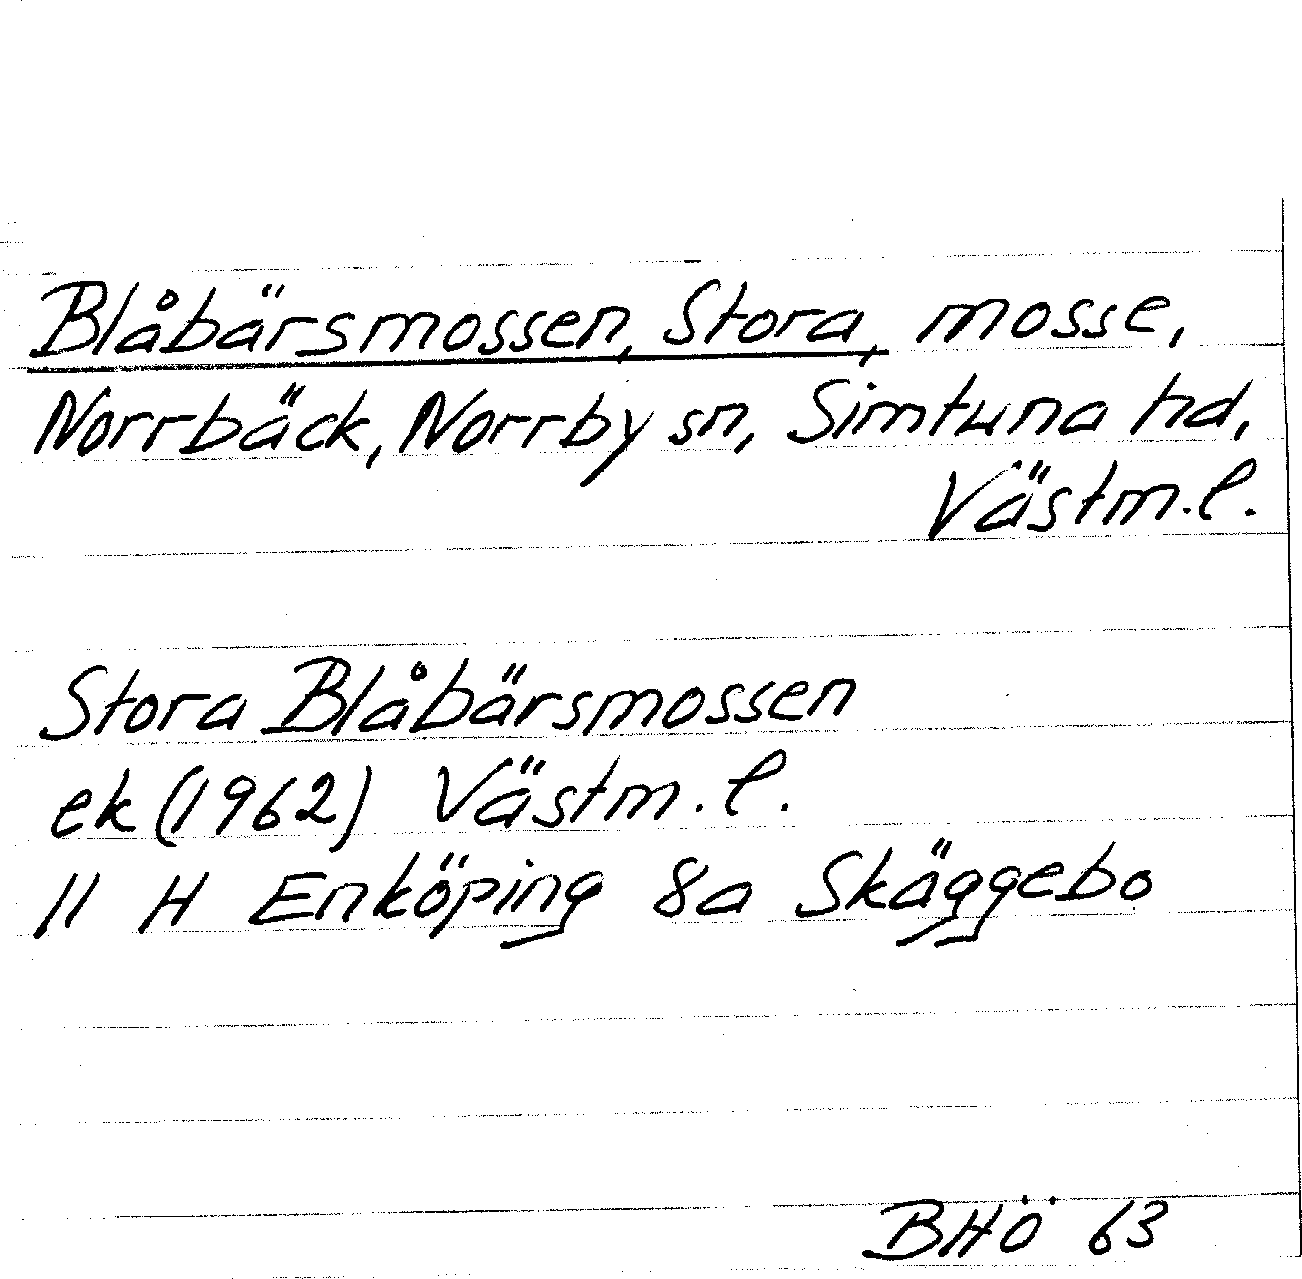 Blåbärsmossen, Stora, mosse,
Norrbäck, Norrby sn, Simtuna hd,
Västm.l.
Stora Blåbärsmossen
ek (1962) Västm.l.
11 H Enköping 8a Skäggebo
BHÖ 63